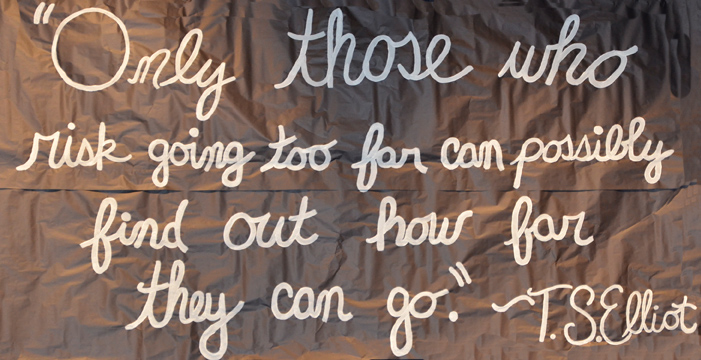 "Only those who
risk going too far can possibly
find out how far
they can go." ~T.S.Elliot